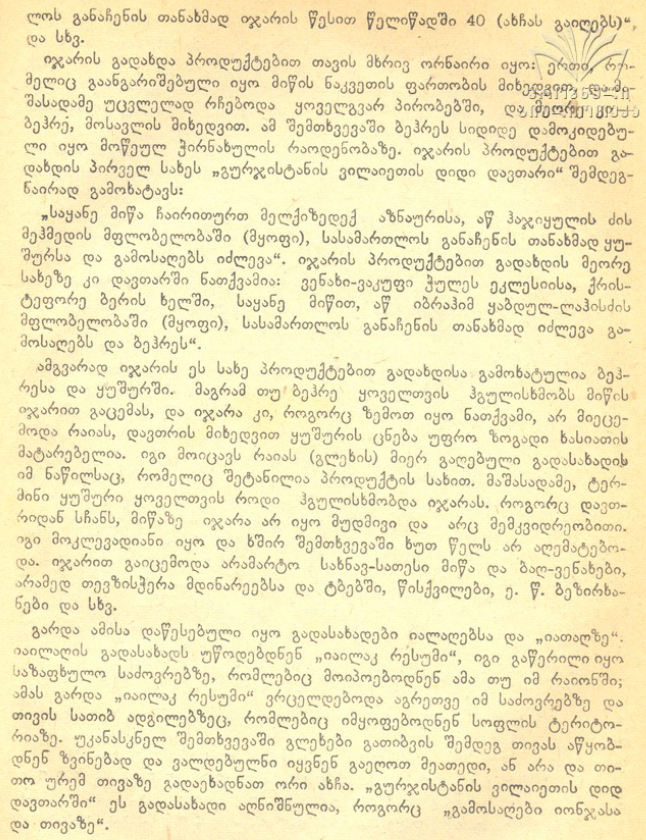 ლოს განაჩენის თანახმად იჯარის წესით წელიწადში 40 (ახჩას გაიღებს)“,
და სხვ.
იჯარის გადახდა პროდუქტებით თავის მხრივ ორნაირი იყო: ერთი, რო-
მელიც გაანგარიშებული იყო მიწის ნაკვეთის ფართობის მიხედვით,
შასადამე უცვლელად რჩებოდა ყოველგვარ პირობებში, და მეორე კი
ბეჰრე, მოსავლის მიხედვით. ამ შემთხვევაში ბეჰრეს სიდიდე დამოკიდებუ-
ლი იყო მოწეულ ჭირნახულის რაოდენობაზე. იჯარის პროდუქტებით გა-
დახდის პირველ სახეს „გურჯისტანის ვილაიეთის დიდი დავთარი“ შემდეგ-
ნაირად გამოხატავს:
„საყანე მიწა ჩაირითურთ მელქიზედექ აზნაურისა, აწ ჰაჯიყულის ძის
მეჰმედის მფლობელობაში (მყოფი), სასამართლოს განაჩენის თანახმად ყუ-
შურსა და გამოსაღებს იძლევა“. იჯარის პროდუქტებით გადახდის მეორე
სახეზე კი დავთარში ნათქვამია: ვენახი-ვაკუფი ჭულეს ეკლესიისა, ქრის-
ტეფორე ბერის ხელში, საყანე მიწით, აწ იბრაჰიმ ყაბდულ-ლაჰისძის
მფლობელობაში (მყოფი), სასამართლოს განაჩენის თანახმად იძლევა გა-
მოსაღებს და ბეჰრეს“.
ამგვარად იჯარის ეს სახე პროდუქტებით გადახდისა გამოხატულია ბეჰ-
რესა და ყუშურში. მაგრამ თუ ბეჰრე ყოველთვის ჰგულისხმობს მიწის
იჯარით გაცემას, და იჯარა კი, როგორც ზემოთ იყო ნათქვამი, არ მიეცე-
მოდა რაიას, დავთრის მიხედვით ყუშურის ცნება უფრო ზოგადი ხასიათის
მატარებელია. იგი მოიცავს რაიას (გლეხის) მიერ გაღებული გადასახადის
იმ ნაწილსაც, რომელიც შეტანილია პროდუქტის სახით. მაშასადამე, ტერ-
მინი ყუშური ყოველთვის როდი ჰგულისხმობდა იჯარას. როგორც დავთ-
რიდან სჩანს, მიწაზე იჯარა არ იყო მუდმივი და არც მემკვიდრეობითი.
იგი მოკლევადიანი იყო და ხშირ შემთხვევაში ხუთ წელს არ აღემატებო-
და. იჯარით გაიცემოდა არამარტო სახნავ-სათესი მიწა და ბაღ-ვენახები,
არამედ თევზისჭერა მდინარეებსა და ტბებში, წისქვილები, ე. წ. ბეზირხა-
ნები და სხვ.
გარდა ამისა დაწესებული იყო გადასახადები იალაღებსა და „იათაღზე“.
იაილაღის გადასახადს უწოდებდნენ „იაილაკ რესუმი“, იგი გაწერილი იყო
საზაფხულო საძოვრებზე, რომლებიც მოიპოებოდნენ ამა თუ იმ რაიონში;
ამას გარდა „იაილაკ რესუმი“ ვრცელდებოდა აგრეთვე იმ საძოვრებზე და
თივის სათიბ ადგილებზეც, რომლებიც იმყოფებოდნენ სოფლის ტერიტო-
რიაზე. უკანასკნელ შემთხვევაში გლეხები გათიბვის შემდეგ თივას აწყობ-
დნენ ზვინებად და ვალდებულნი იყვნენ გაეღოთ მეათედი, ან არა და თი-
თო ურემ თივაზე გადაეხადნათ ორი ახჩა. „გურჯისტანის ვილაიეთის დიდ
დავთარში“ ეს გადასახადი აღნიშნულია, როგორც „გამოსაღები იონჯასა
და თივაზე“.